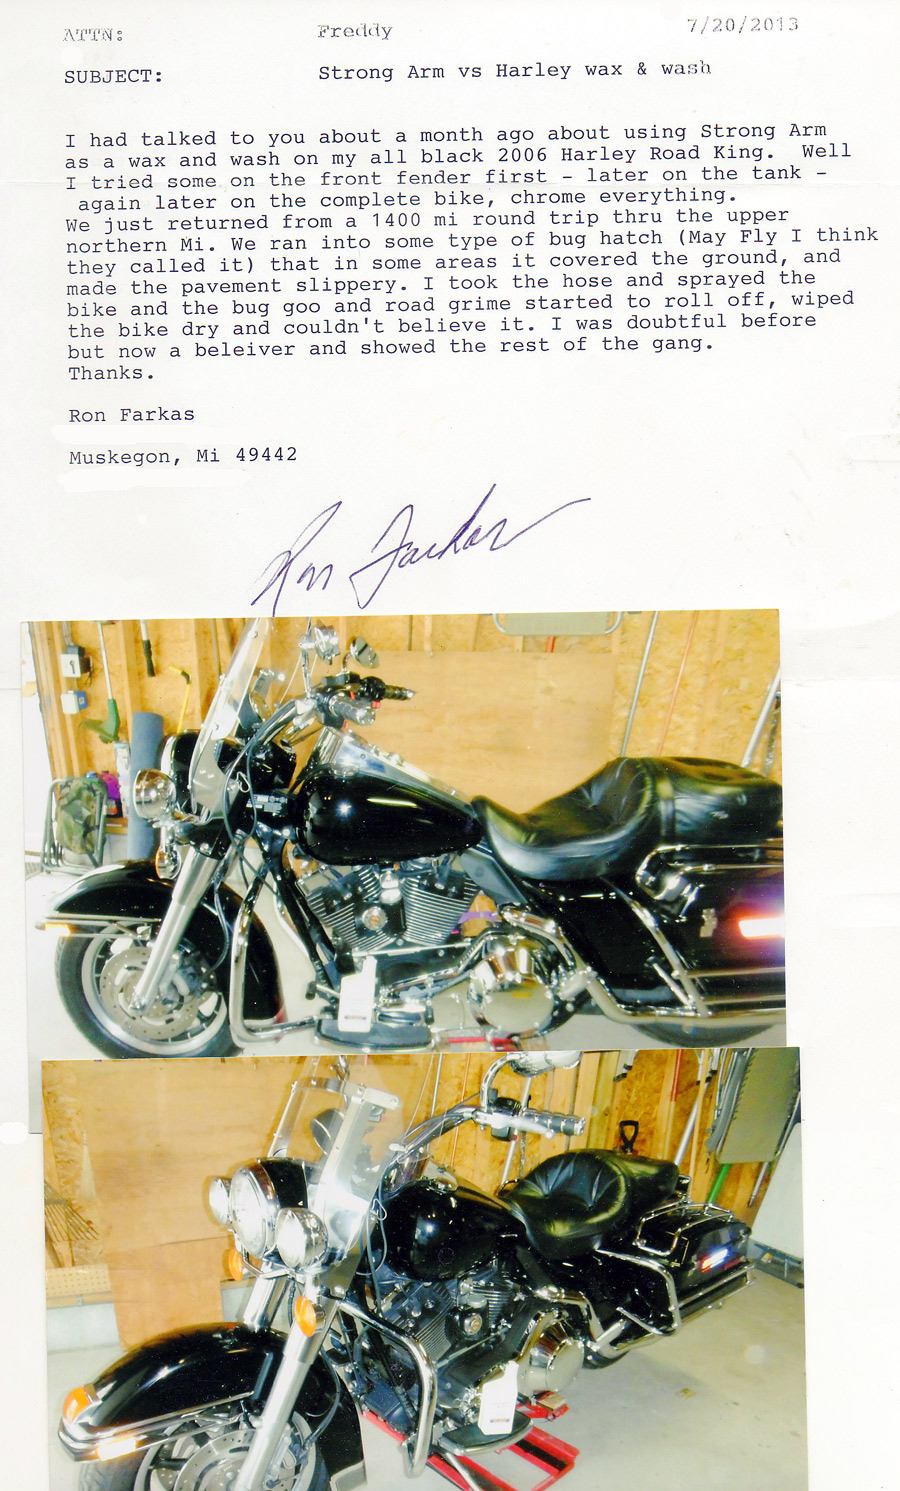 ATTN: Freddy 7/20/2013
SUBJECT: Strong Arm vs Harley wax & wash
I had talked to you about a month ago about using Strong Arm
as a wax and wash on my all black 2006 Harley Road King. Well
I tried some on the front fender first - later on the tank -
again later on the complete bike, chrome everything.
We just returned from a 1400 mi round trip thru the upper
northern Mi. We ran into some type of bug hatch (May Fly I think
they called it) that in some areas it covered the ground, and
made the pavement slippery. I took the hose and sprayed the
bike and the bug goo and road grime started to roll off, wiped
the bike dry and couldn't believe it. I was doubtful before
but now a beleiver and showed the rest of the gang.
Thanks.
Ron Farkas
Muskegon, Mi 49442
Ron Farkas